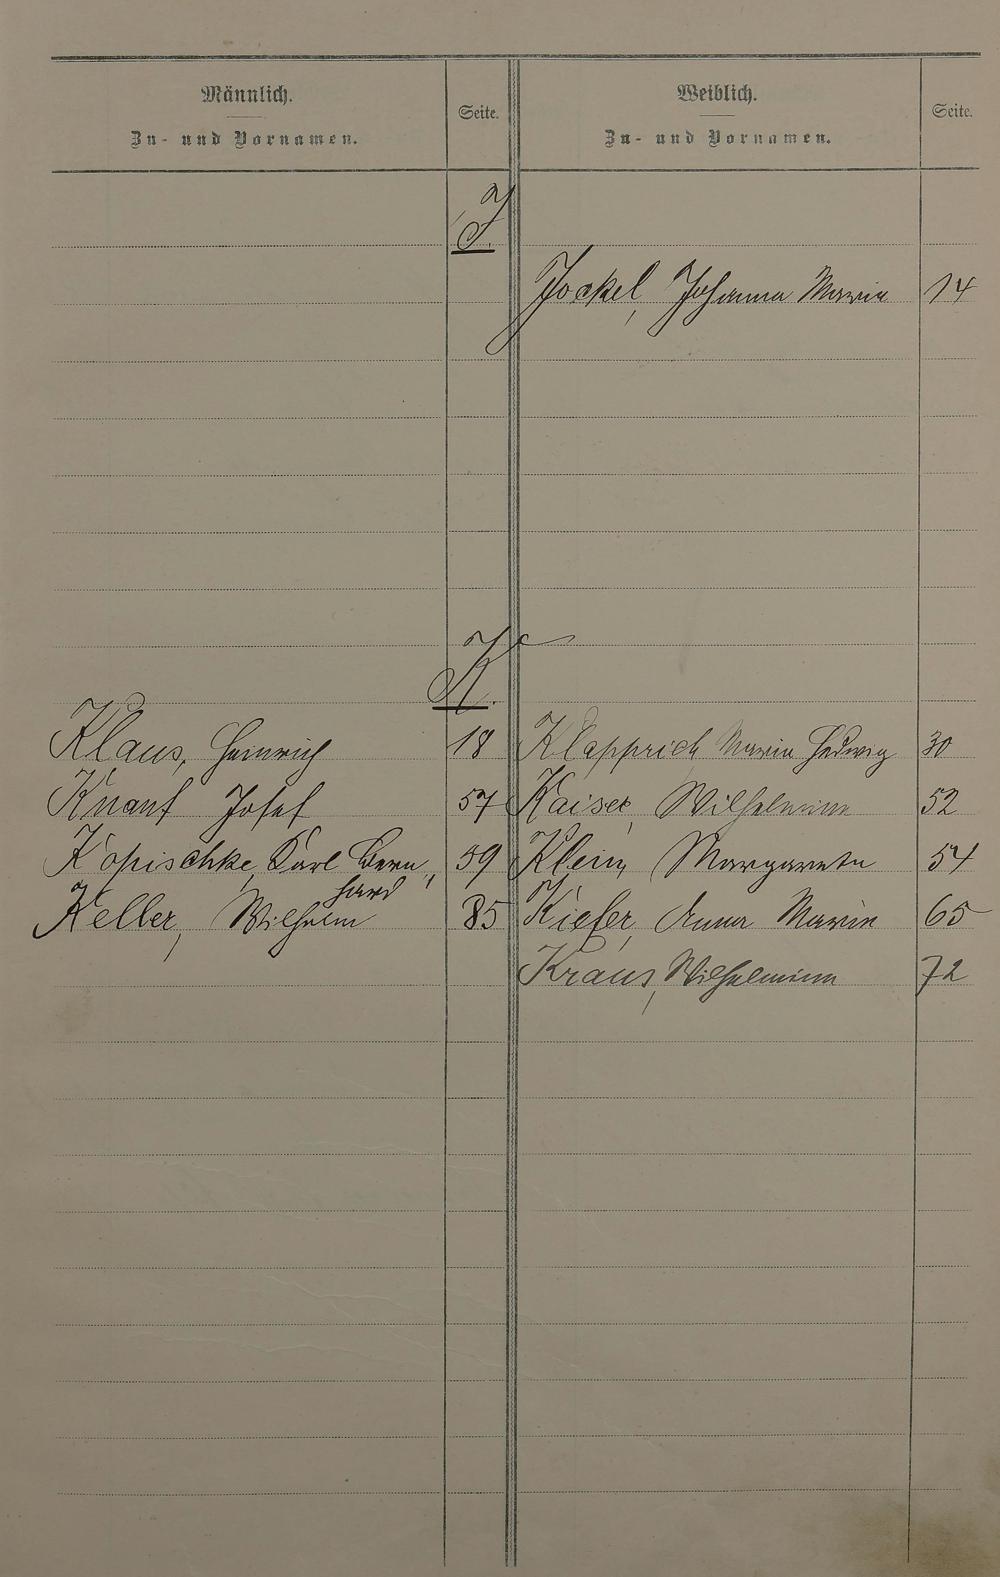 Männlich. Seite. Weiblich. Seite.
Zu- und Vornamen. Zu- und Vornamen.
J.
Jockel, Johanna Maria 14
K.
Klaus, Heinrich 18 Klapprich Maria Hedwig 30
Knauf Josef 57 Kaiser, Wilhelmine 52
Kopischke, Karl Bern„ 59 Klein, Margareta 54
hard
Keller, Wilhelm 85 Kiefer, Anna Maria 65
Kraus, Wilhelmina 72